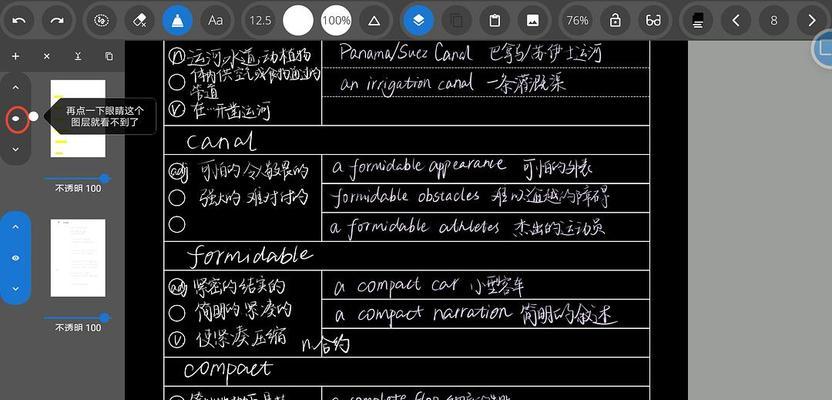 Aa 12.5 100% 76% 8
再点一下眼睛这个
图层就看不到了
不透明 100
不透明 100
n 运河,水道,动植物
体内供空气或食物通过的
管道
v 在…开凿运河
Panama/Suez Canal 巴拿马/苏伊士运河
an irrigation canal 一条灌溉渠
canal
adj 可怕的 令人敬畏的
强大的 难对付的
a formidable appearance 可怕的外表
formidable obstacles 难以逾越的障碍
a formidable athletes 杰出的运动员
formidable
adj 紧密的 结实的
简明的 紧凑的
v 使紧凑 压缩
n 合约
a compact car 小型客车
a compact narration 简明的叙述
compact